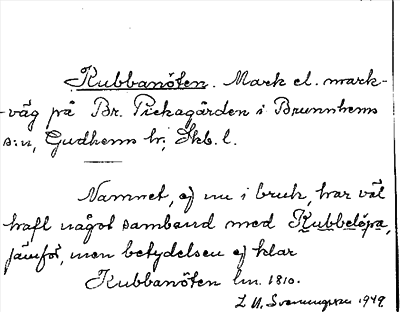 Kubbanöten. Mark el. mark-
-väg på Br. Pickagården i Brunnhems
s:n, Gudhems hr; Skb. l.
Namnet, ej nu i bruk, har väl
haft något samband med Kubbelöpa,
jämför, men betydelsen ej klar
Kubbanöten lm. 1810.
1949